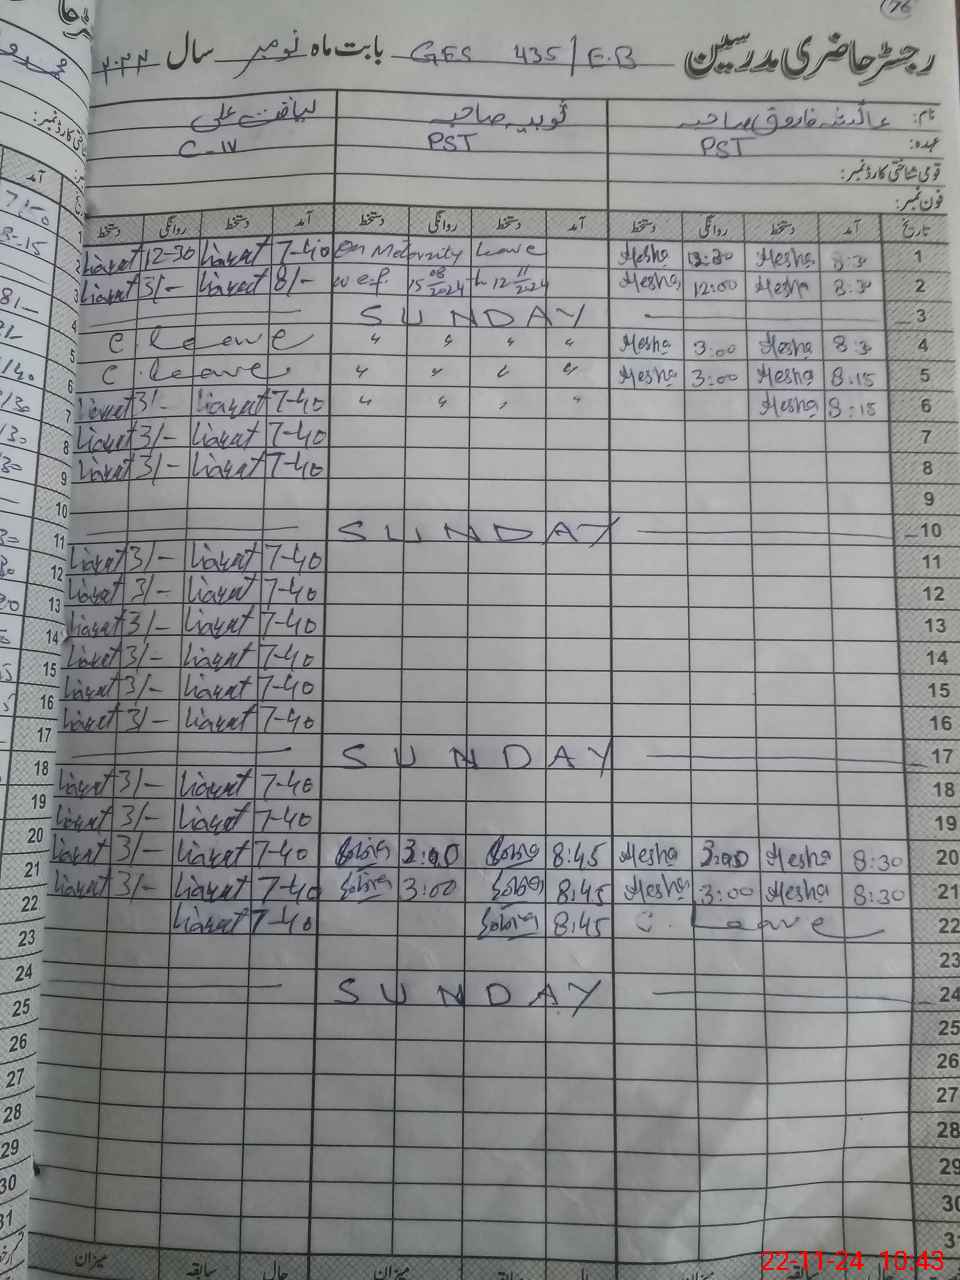 76
رجسٹر حاضری مدرسین GES 435/E.B بابت ماہ نومبر سال ۲۰۲۴
نام: عائشہ فاروق صاحبہ ثوبیہ صاحبہ لیاقت علی
عہدہ: PST PST C-IV
قومی شناختی کارڈ نمبر:
فون نمبر:
تاریخ آمد دستخط روانگی دستخط آمد دستخط روانگی دستخط آمد دستخط روانگی دستخط
Liaqat 12-30 Liaqat 7-40 On Maternity Leave Aesha 12:30 Aesha 8:30 1
Liaqat 3/- Liaqat 8/- w.e.f. 15 08/2024 to 12 11/2024 Aesha 12:00 Aesha 8:30 2
SUNDAY 3
C. leave " " " " Aesha 3:00 Aesha 8:30 4
C. leave " " " " Aesha 3:00 Aesha 8:15 5
Liaqat 3/- Liaqat 7-40 " " " " Aesha 8:15 6
Liaqat 3/- Liaqat 7-40 7
Liaqat 3/- Liaqat 7-40 8
9
SUNDAY 10
Liaqat 3/- Liaqat 7-40 11
Liaqat 3/- Liaqat 7-40 12
Liaqat 3/- Liaqat 7-40 13
Liaqat 3/- Liaqat 7-40 14
Liaqat 3/- Liaqat 7-40 15
Liaqat 3/- Liaqat 7-40 16
SUNDAY 17
Liaqat 3/- Liaqat 7-40 18
Liaqat 3/- Liaqat 7-40 19
Liaqat 3/- Liaqat 7-40 3:00 8:45 Aesha 3:00 Aesha 8:30 20
Liaqat 3/- Liaqat 7-40 3:00 8:45 Aesha 3:00 Aesha 8:30 21
Liaqat 7-40 8:45 C. Leave 22
23
SUNDAY 24
25
26
27
28
29
30
31
میزان سابقہ حال میزان سابقہ
22-11-24 10:43